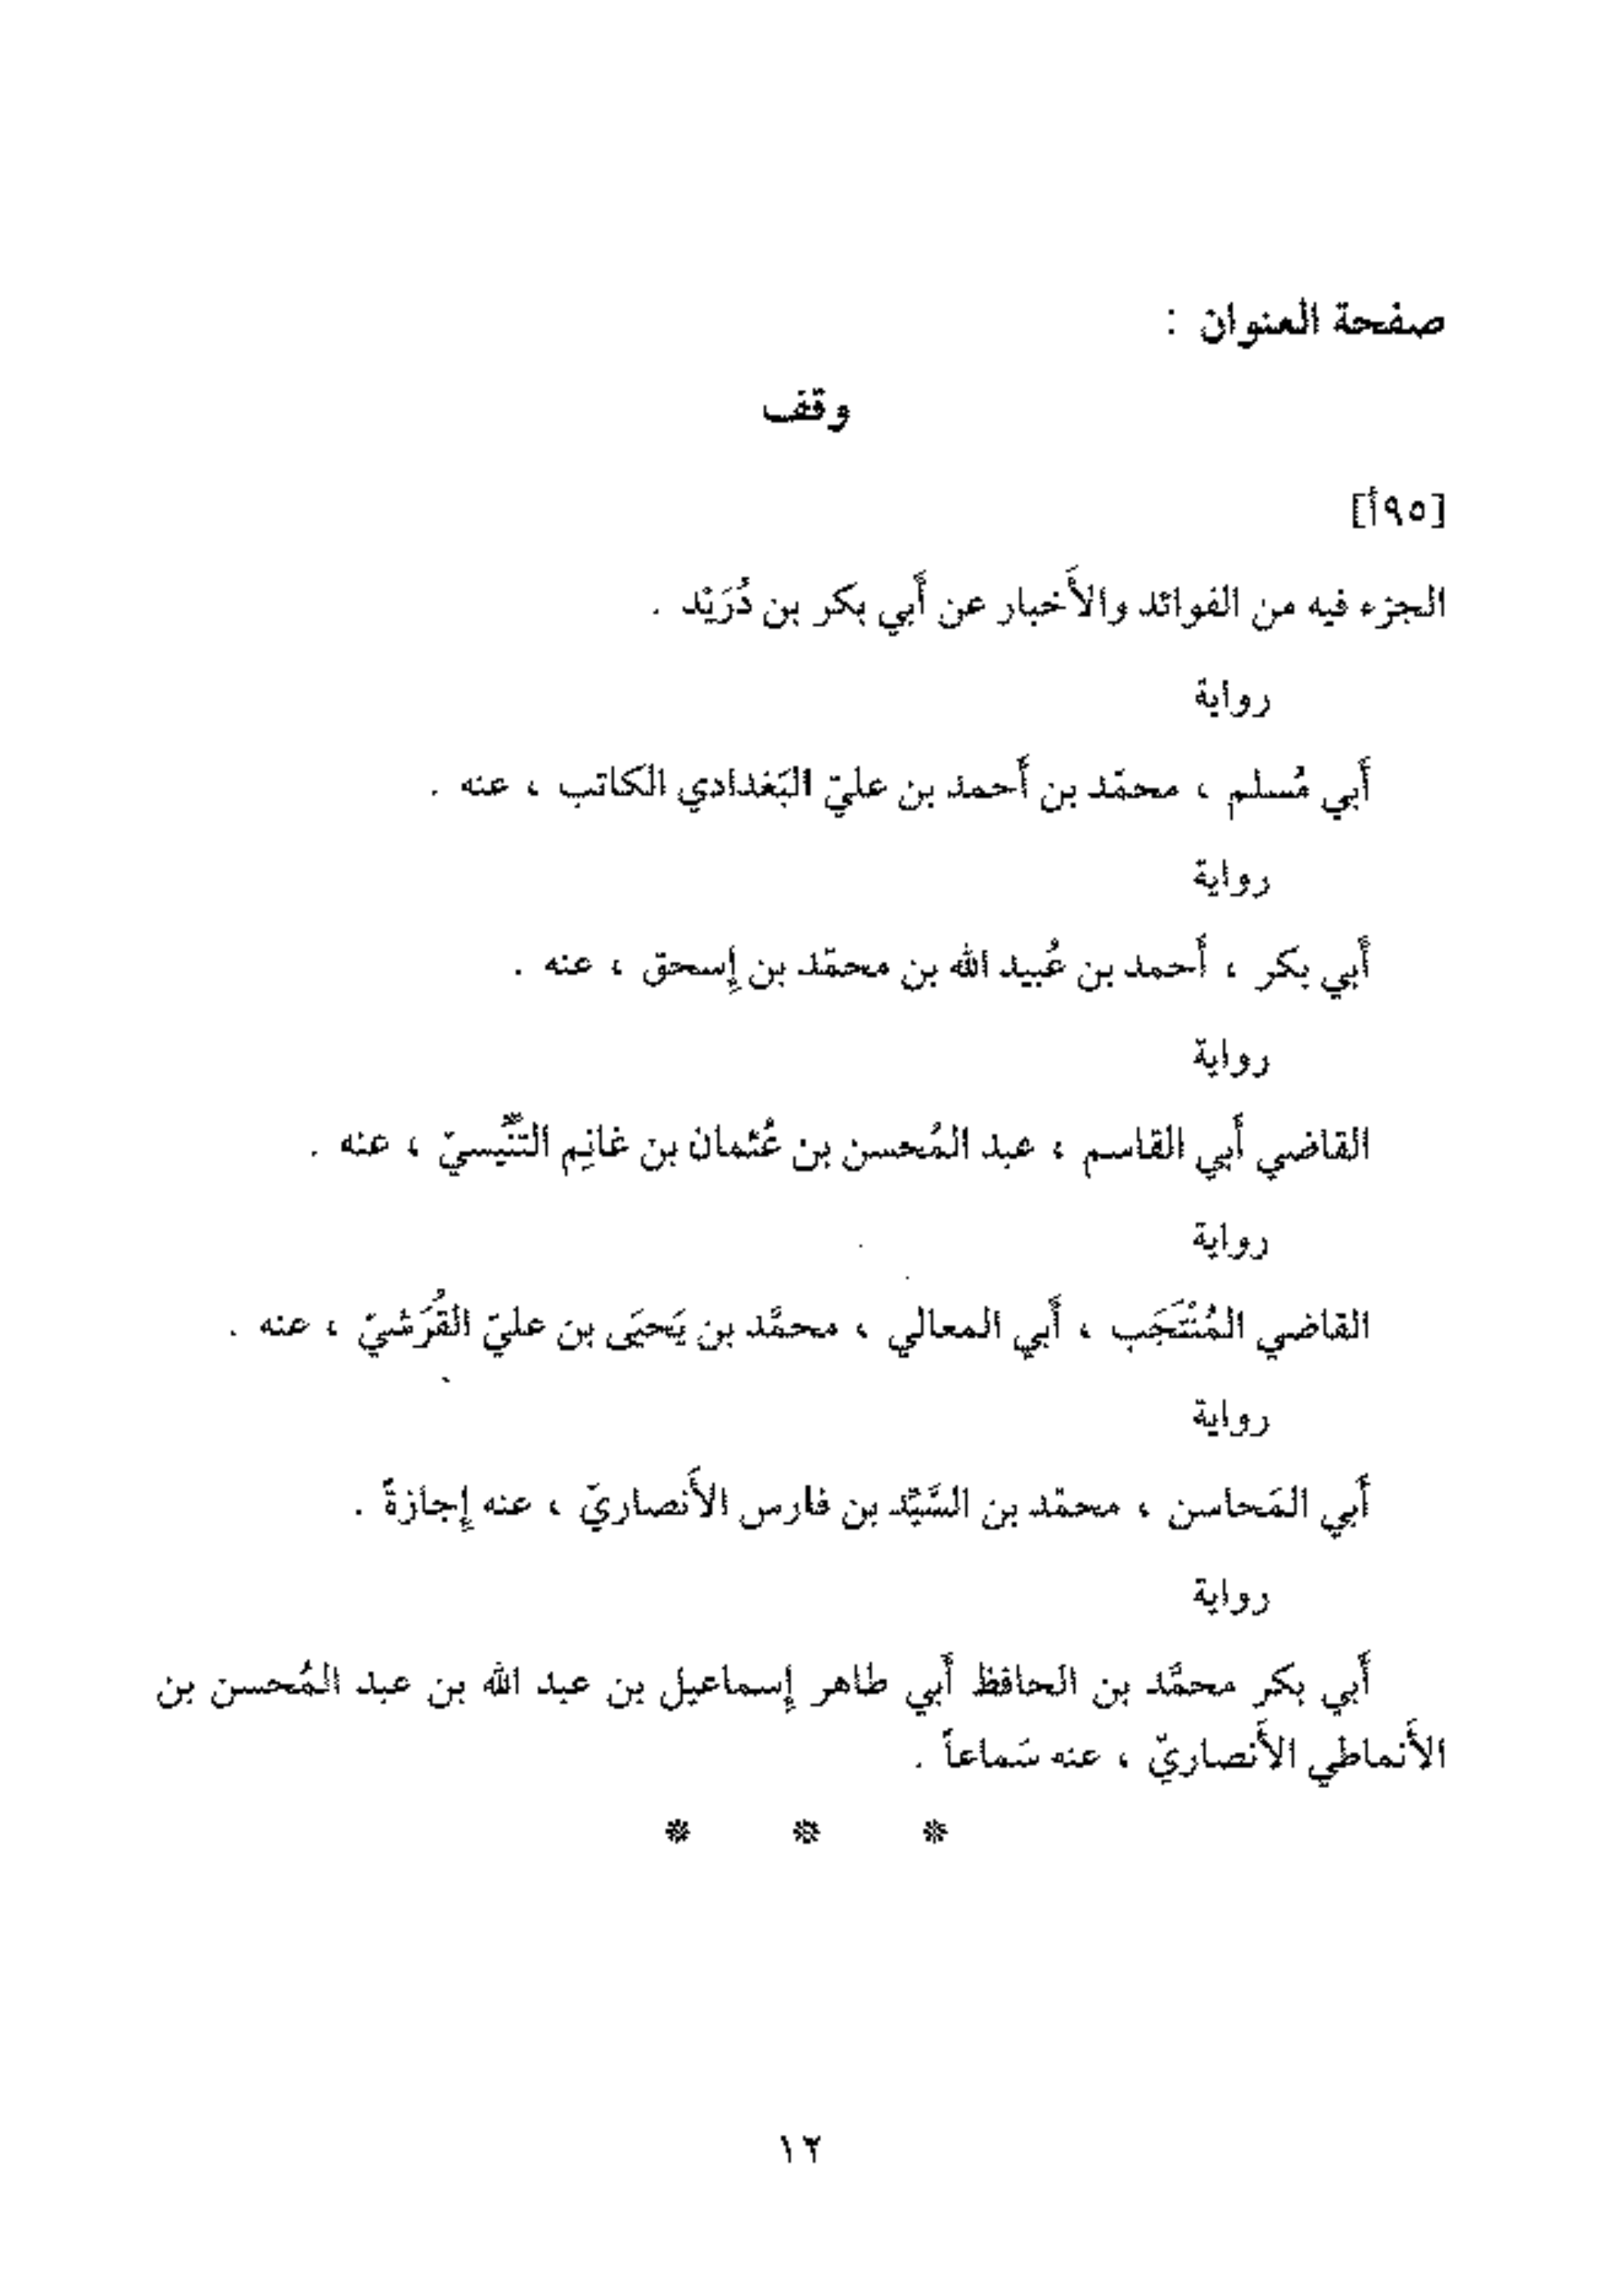 صفحة العنوان :
وقف
[٩٥أ]
الجزء فيه من الفوائد والأَخبار عن أَبي بكر بن دُرَيْد .
رواية
أَبي مُسلم ، محمّد بن أَحمد بن عليّ البَغدادي الكاتب ، عنه .
رواية
أَبي بكر ، أَحمد بن عُبيد الله بن محمّد بن إِسحق ، عنه .
رواية
القاضي أَبي القاسم ، عبد المُحسن بن عُثمان بن غانِم التِّنِّيسيّ ، عنه .
رواية
القاضي المُنْتَجَب ، أَبي المعالي ، محمَّد بن يَحيَى بن عليّ القُرَشيّ ، عنه .
رواية
أَبي المَحاسن ، محمّد بن السَّيِّد بن فارس الأَنصاريّ ، عنه إِجازةً .
رواية
أَبي بكر محمَّد بن الحافظ أَبي طاهر إِسماعيل بن عبد الله بن عبد المُحسن بن
الأَنماطي الأَنصاريّ ، عنه سَماعاً .
* * *
١٢